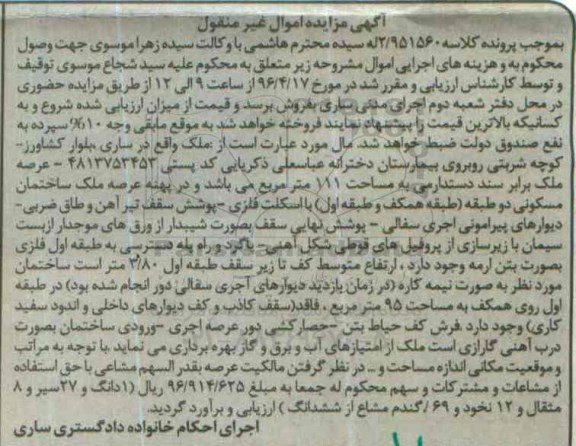 آگهی مزایده اموال غیر منقول
بموجب پرونده کلاسه ۲/۹۵۱۵۶۰ له سیده محترم هاشمی با وکالت سیده زهرا موسوی جهت وصول
محکوم به و هزینه های اجرایی اموال مشروحه زیر متعلق به محکوم علیه سید شجاع موسوی توقیف
و توسط کارشناس ارزیابی و مقرر شد در مورخ ۹۶/۴/۱۷ از ساعت ۹ الی ۱۲ از طریق مزایده حضوری
در محل دفتر شعبه دوم اجرای مدنی ساری بفروش برسد و قیمت از میزان ارزیابی شده شروع و به
کسانیکه بالاترین قیمت را پیشنهاد نمایند فروخته خواهد شد به موقع مابقی وجه ۱۰٪ سپرده به
نفع صندوق دولت ضبط خواهد شد. مال مورد عبارت است از :ملک واقع در ساری ،بلوار کشاورز-
کوچه شربتی روبروی بیمارستان دخترانه عباسعلی ذکریایی کد پستی ۴۸۱۳۷۵۳۴۵۳ - عرصه
ملک برابر سند دستدارمی به مساحت ۱۱۱ متر مربع می باشد و در پهنه عرصه ملک ساختمان
مسکونی دو طبقه (طبقه همکف و طبقه اول) با اسکلت فلزی -پوشش سقف تیر آهن و طاق ضربی-
دیوارهای پیرامونی اجری سفالی - پوشش نهایی سقف بصورت شیبدار از ورق های موجدار ازبست
سیمان با زیرسازی از پروفیل های قوطی شکل آهنی- باگرد و راه پله دسترسی به طبقه اول فلزی
بصورت بتن ارمه وجود دارد ، ارتفاع متوسط کف تا زیر سقف طبقه اول ۲/۸۰ متر است ساختمان
مورد نظر به صورت نیمه کاره (در زمان بازدید دیوارهای آجری سفالی دور انجام شده بود) در طبقه
اول روی همکف به مساحت ۹۵ متر مربع ، فاقد(سقف کاذب و کف دیوارهای داخلی و اندود سفید
کاری) وجود دارد .فرش کف حیاط بتن -حصارکشی دور عرصه اجری -ورودی ساختمان بصورت
درب آهنی گاراژی است ملک از امتیازهای آب و برق و گاز بهره برداری می نماید .با توجه به مراتب
و موقعیت مکانی اندازه مساحت و ... در نظر گرفتن مالکیت عرصه بقدر السهم مشاعی با حق استفاده
از مشاعات و مشترکات و سهم محکوم له جمعا به مبلغ ۹۶/۹۱۴/۶۲۵ ریال (۱دانگ و ۲۷سیر و ۸
مثقال و ۱۲ نخود و ۶۹ /گندم مشاع از ششدانگ ) ارزیابی و برآورد گردید.
اجرای احکام خانواده دادگستری ساری